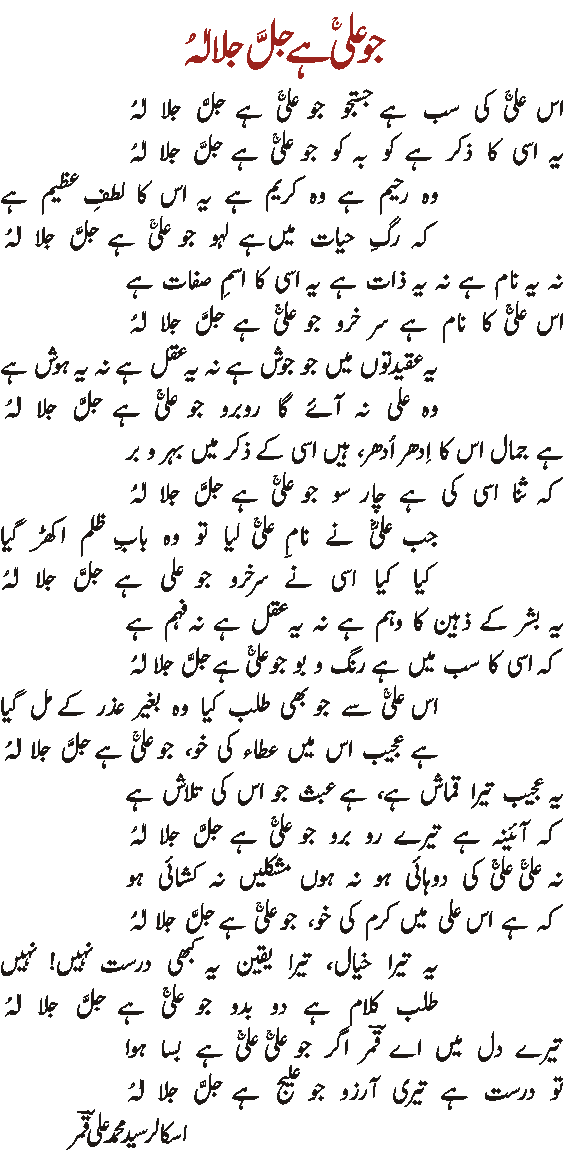 جو علیؑ ہے جلَّ جلالہٗ
اس علیؑ کی سب ہے جستجو جو علیؑ ہے جلَّ جلا لہٗ
یہ اسی کا ذکر ہے کو بہ کو جو علیؑ ہے جلَّ جلا لہٗ
وہ رحیم ہے وہ کریم ہے یہ اس کا لطفِ عظیم ہے
کہ رگِ حیات میں ہے لہو جو علیؑ ہے جلَّ جلا لہٗ
نہ یہ نام ہے نہ یہ ذات ہے یہ اسی کا اسمِ صفات ہے
اس علیؑ کا نام ہے سر خرو جو علیؑ ہے جلَّ جلا لہٗ
یہ عقیدتوں میں جو جوش ہے نہ یہ عقل ہے نہ یہ ہوش ہے
وہ علی نہ آئے گا روبرو جو علیؑ ہے جلَّ جلا لہٗ
ہے جمال اس کا اِدھر اُدھر، ہیں اسی کے ذکر میں بہر و بر
کہ ثنا اسی کی ہے چار سو جو علیؑ ہے جلَّ جلا لہٗ
جب علیؑ نے نامِ علیؑ لیا تو وہ بابِ ظلم اکھڑ گیا
کیا کیا اسی نے سرخرو جو علی ہے جلَّ جلا لہٗ
یہ بشر کے ذہین کا وہم ہے نہ یہ عقل ہے نہ فہم ہے
کہ اسی کا سب میں ہے رنگ و بو جو علیؑ ہے جلَّ جلا لہٗ
اس علیؑ سے جو بھی طلب کیا وہ بغیر عذر کے مل گیا
ہے عجیب اس میں عطاء کی خو، جو علیؑ ہے جلَّ جلا لہٗ
یہ عجیب تیرا قماش ہے، ہے عبث جو اس کی تلاش ہے
کہ آئینہ ہے تیرے رو برو جو علیؑ ہے جلَّ جلا لہٗ
نہ علیؑ علیؑ کی دوہائی ہو نہ ہوں مشکلیں نہ کشائی ہو
کہ ہے اس علی میں کرم کی خو، جو علیؑ ہے جلَّ جلا لہٗ
یہ تیرا خیال، تیرا یقین یہ کبھی درست نہیں! نہیں
طلب کلام ہے دو بدو جو علیؑ ہے جلَّ جلا لہٗ
تیرے دل میں اے قمؔر اگر جو علیؑ علیؑ ہے بسا ہوا
تو درست ہے تیری آرزو جو علیؑ ہے جلَّ جلا لہٗ
اسکالر سید محمد علی قمؔر